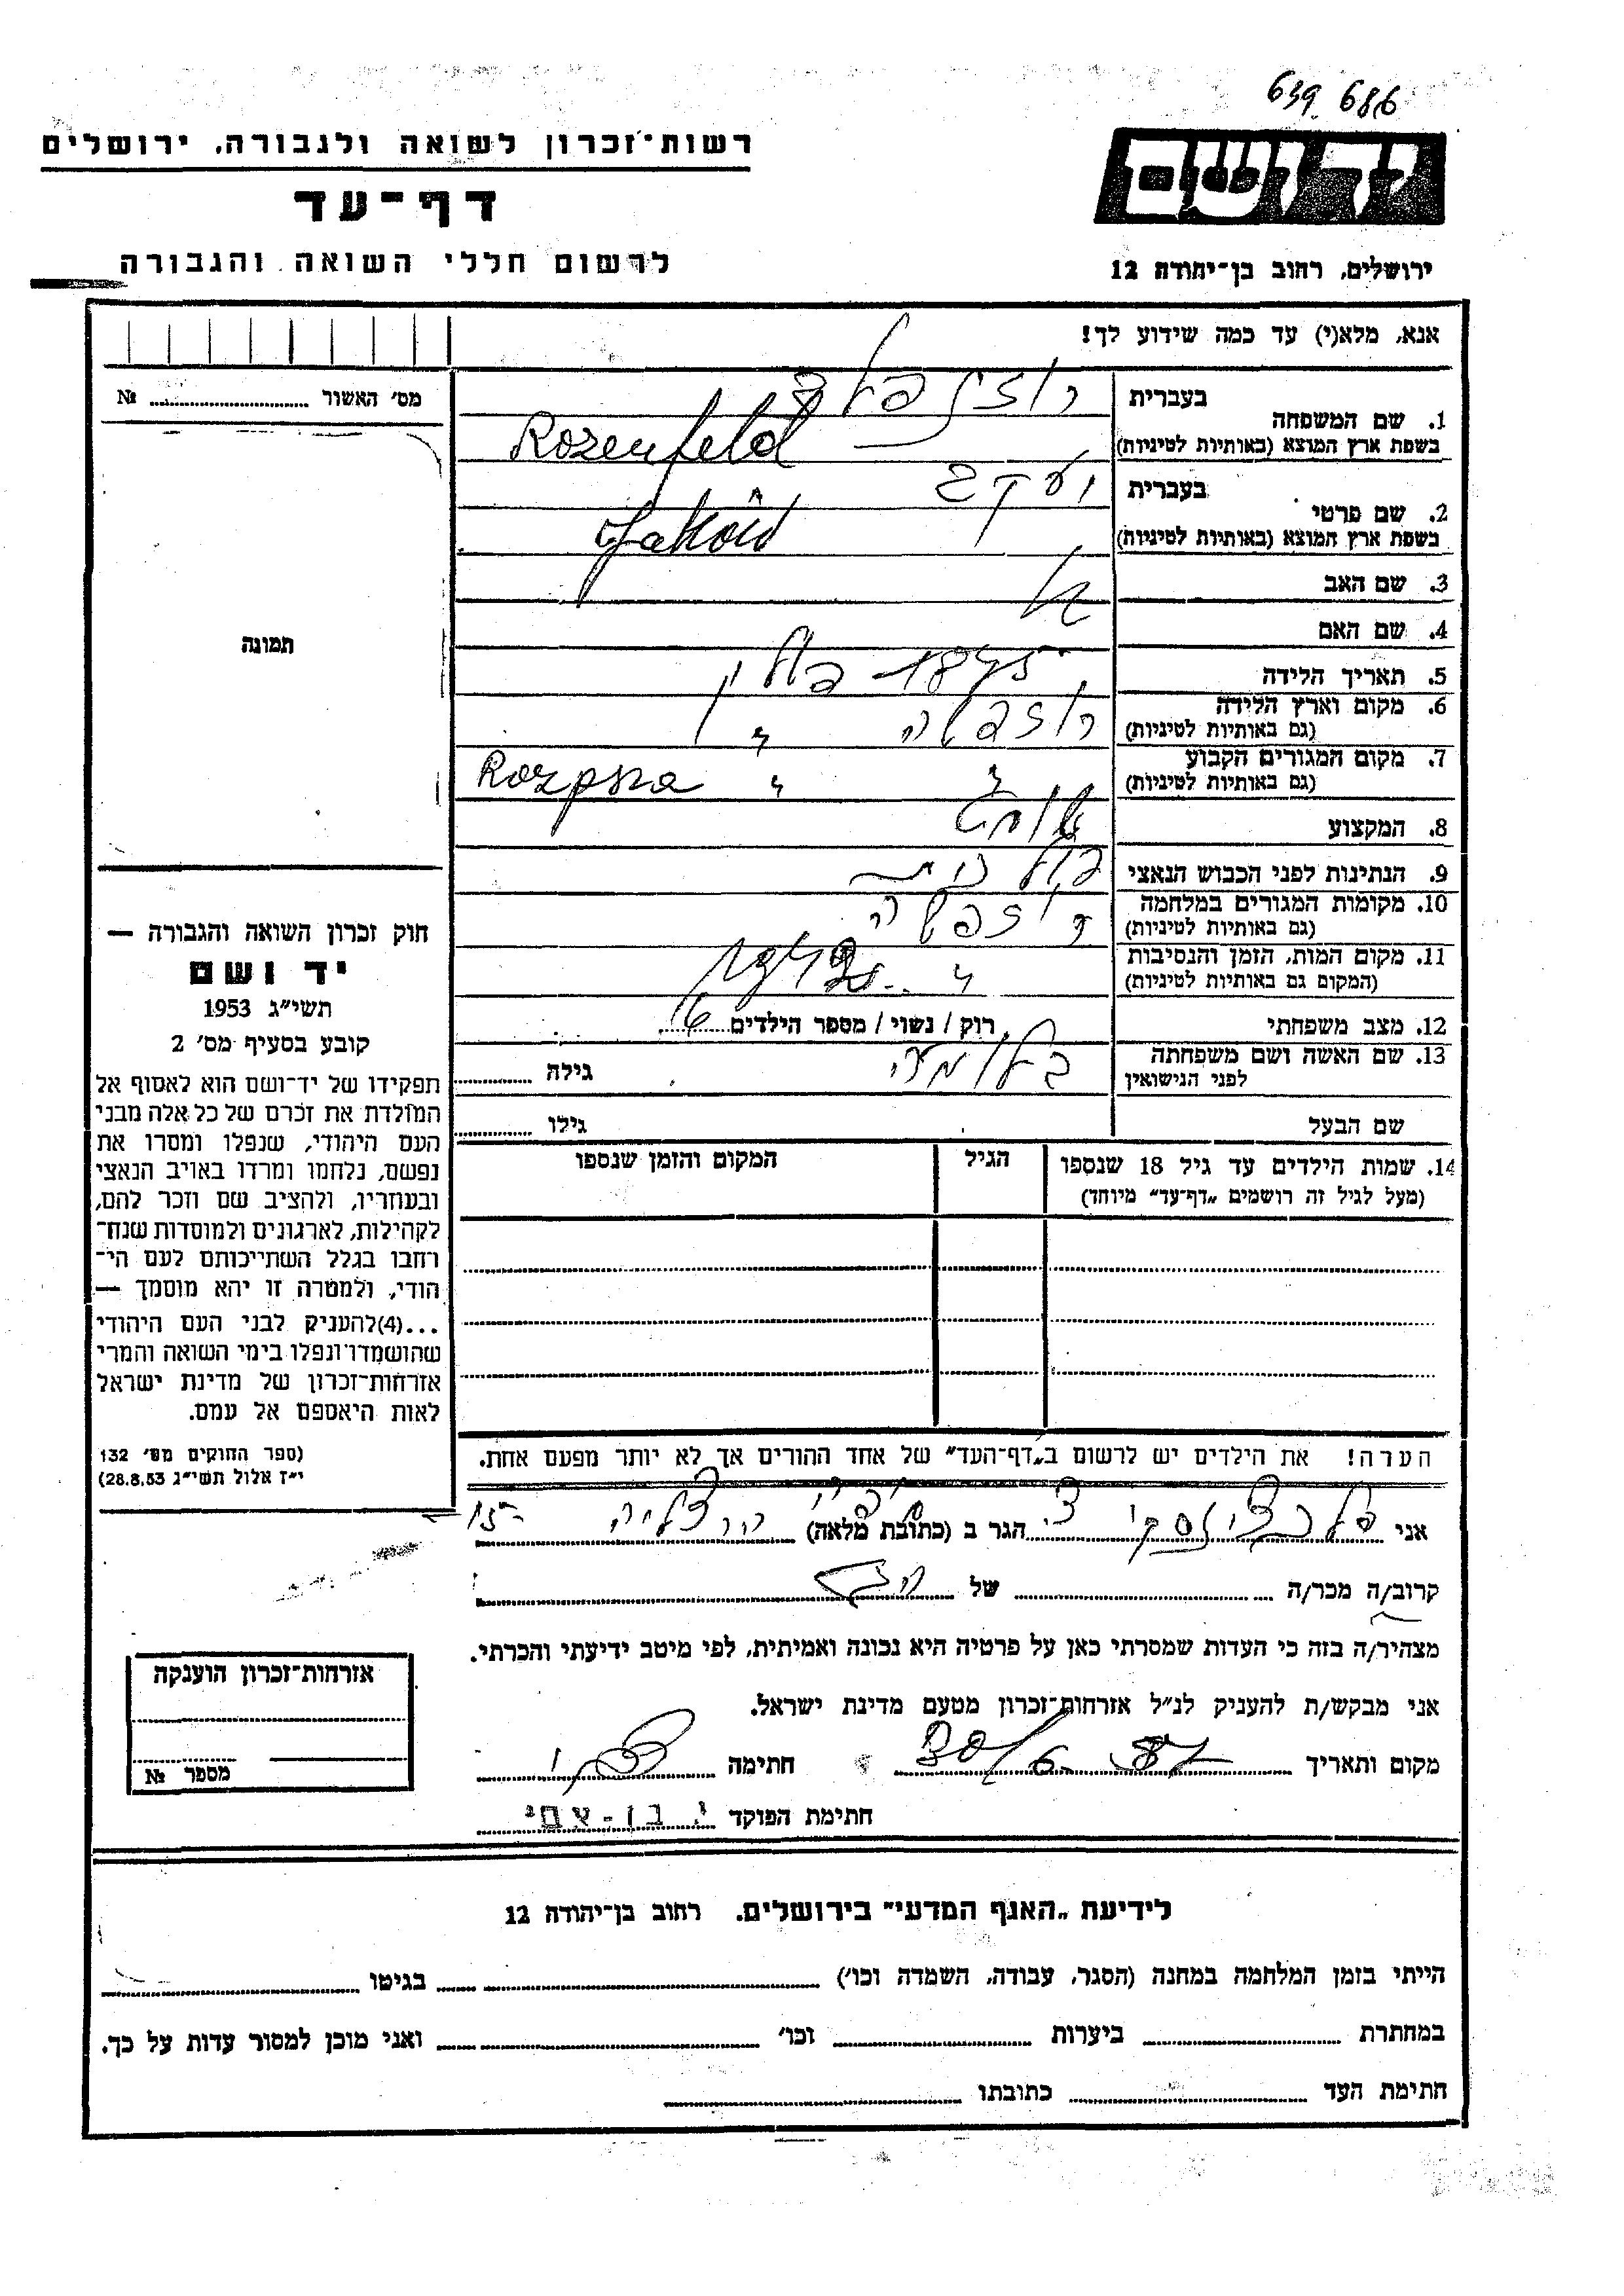 639 686
רשות־זכרון לשואה ולגבורה, ירושלים
יד ושם
דף־עד
לרשום חללי השואה והגבורה
ירושלים, רחוב בן־יהודה 12
אנא, מלא(י) עד כמה שידוע לך!
מס׳ האשור № ........
1. שם המשפחה
בעברית רוזנפלד
בשפת ארץ המוצא (באותיות לטיניות) Rozenfeld
2. שם פרטי
בעברית יעקב
בשפת ארץ המוצא (באותיות לטיניות)
3. שם האב
4. שם האם
5. תאריך הלידה פולין
6. מקום וארץ הלידה רוזפשה "
(גם באותיות לטיניות)
7. מקום המגורים הקבוע " " Rozpsza
(גם באותיות לטיניות)
8. המקצוע סוחר
9. הנתינות לפני הכבוש הנאצי פולנית
10. מקומות המגורים במלחמה רוזפשה
(גם באותיות לטיניות)
11. מקום המות, הזמן והנסיבות "
(המקום גם באותיות לטיניות)
12. מצב משפחתי רוק / נשוי / מספר הילדים 6
13. שם האשה ושם משפחתה בלומה גילה ........
לפני הנישואין
שם הבעל גילו ........
14. שמות הילדים עד גיל 18 שנספו הגיל המקום והזמן שנספו
(מעל לגיל זה רושמים „דף־עד״ מיוחד)
הערה! את הילדים יש לרשום ב„דף־העד״ של אחד ההורים אך לא יותר מפעם אחת.
תמונה
חוק זכרון השואה והגבורה —
יד ושם
תשי״ג 1953
קובע בסעיף מס׳ 2
תפקידו של יד־ושם הוא לאסוף אל
המולדת את זכרם של כל אלה מבני
העם היהודי, שנפלו ומסרו את
נפשם, נלחמו ומרדו באויב הנאצי
ובעוזריו, ולהציב שם וזכר להם,
לקהילות, לארגונים ולמוסדות שנח־
רחבו בגלל השתייכותם לעם הי־
הודי, ולמטרה זו יהא מוסמך —
...(4)להעניק לבני העם היהודי
שהושמדו ונפלו בימי השואה והמרי
אזרחות־זכרון של מדינת ישראל
לאות היאספם אל עמם.
(ספר החוקים מס׳ 132
י״ז אלול תשי״ג 28.8.53)
אני הגר ב (כתובת מלאה) הרצליה
קרוב/ה מכר/ה ........ של
מצהיר/ה בזה כי העדות שמסרתי כאן על פרטיה היא נכונה ואמיתית, לפי מיטב ידיעתי והכרתי.
אני מבקש/ת להעניק לנ״ל אזרחות־זכרון מטעם מדינת ישראל.
מקום ותאריך חתימה
חתימת הפוקד י. בן-עמי
אזרחות־זכרון הוענקה
מספר №
לידיעת „האגף המדעי״ בירושלים. רחוב בן־יהודה 12
הייתי בזמן המלחמה במחנה (הסגר, עבודה, השמדה וכו׳) ........ בגיטו ........
במחתרת ........ ביערות ........ וכו׳ ........ ואני מוכן למסור עדות על כך.
חתימת העד ........ כתובתו ........